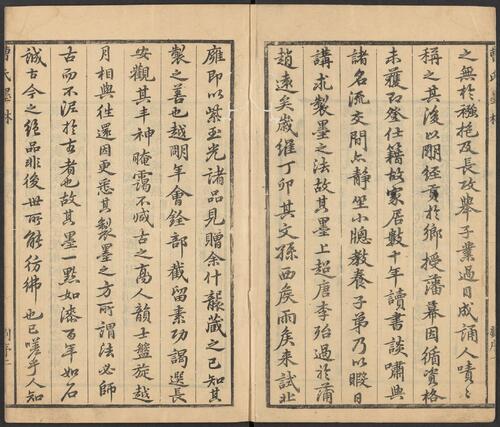 之無於襁抱及長攻舉子業過目成誦人嘖々
稱之其後以明經貢於鄉授藩幕因循資格
未獲即登仕籍故家居數十年讀書談嘯與
諸名流交間亦靜坐小牕教養子弟乃以暇日
講求製墨之法故其墨上超唐李殆過於蒲
趙遠矣歲維丁卯其文孫西矦雨矦來試北
雍即以紫玉光諸品見贈余什襲藏之已知其
製之善也越明年會銓部截留素功謁選長
安觀其丰神晻靄不減古之高人韻士盤旋越
月相與往還因更悉其製墨之方所謂法必師
古而不泥於古者也故其墨一點如漆百年如石
誠古今之絕品非後世所能彷彿也已嗟乎人知
曹氏墨林